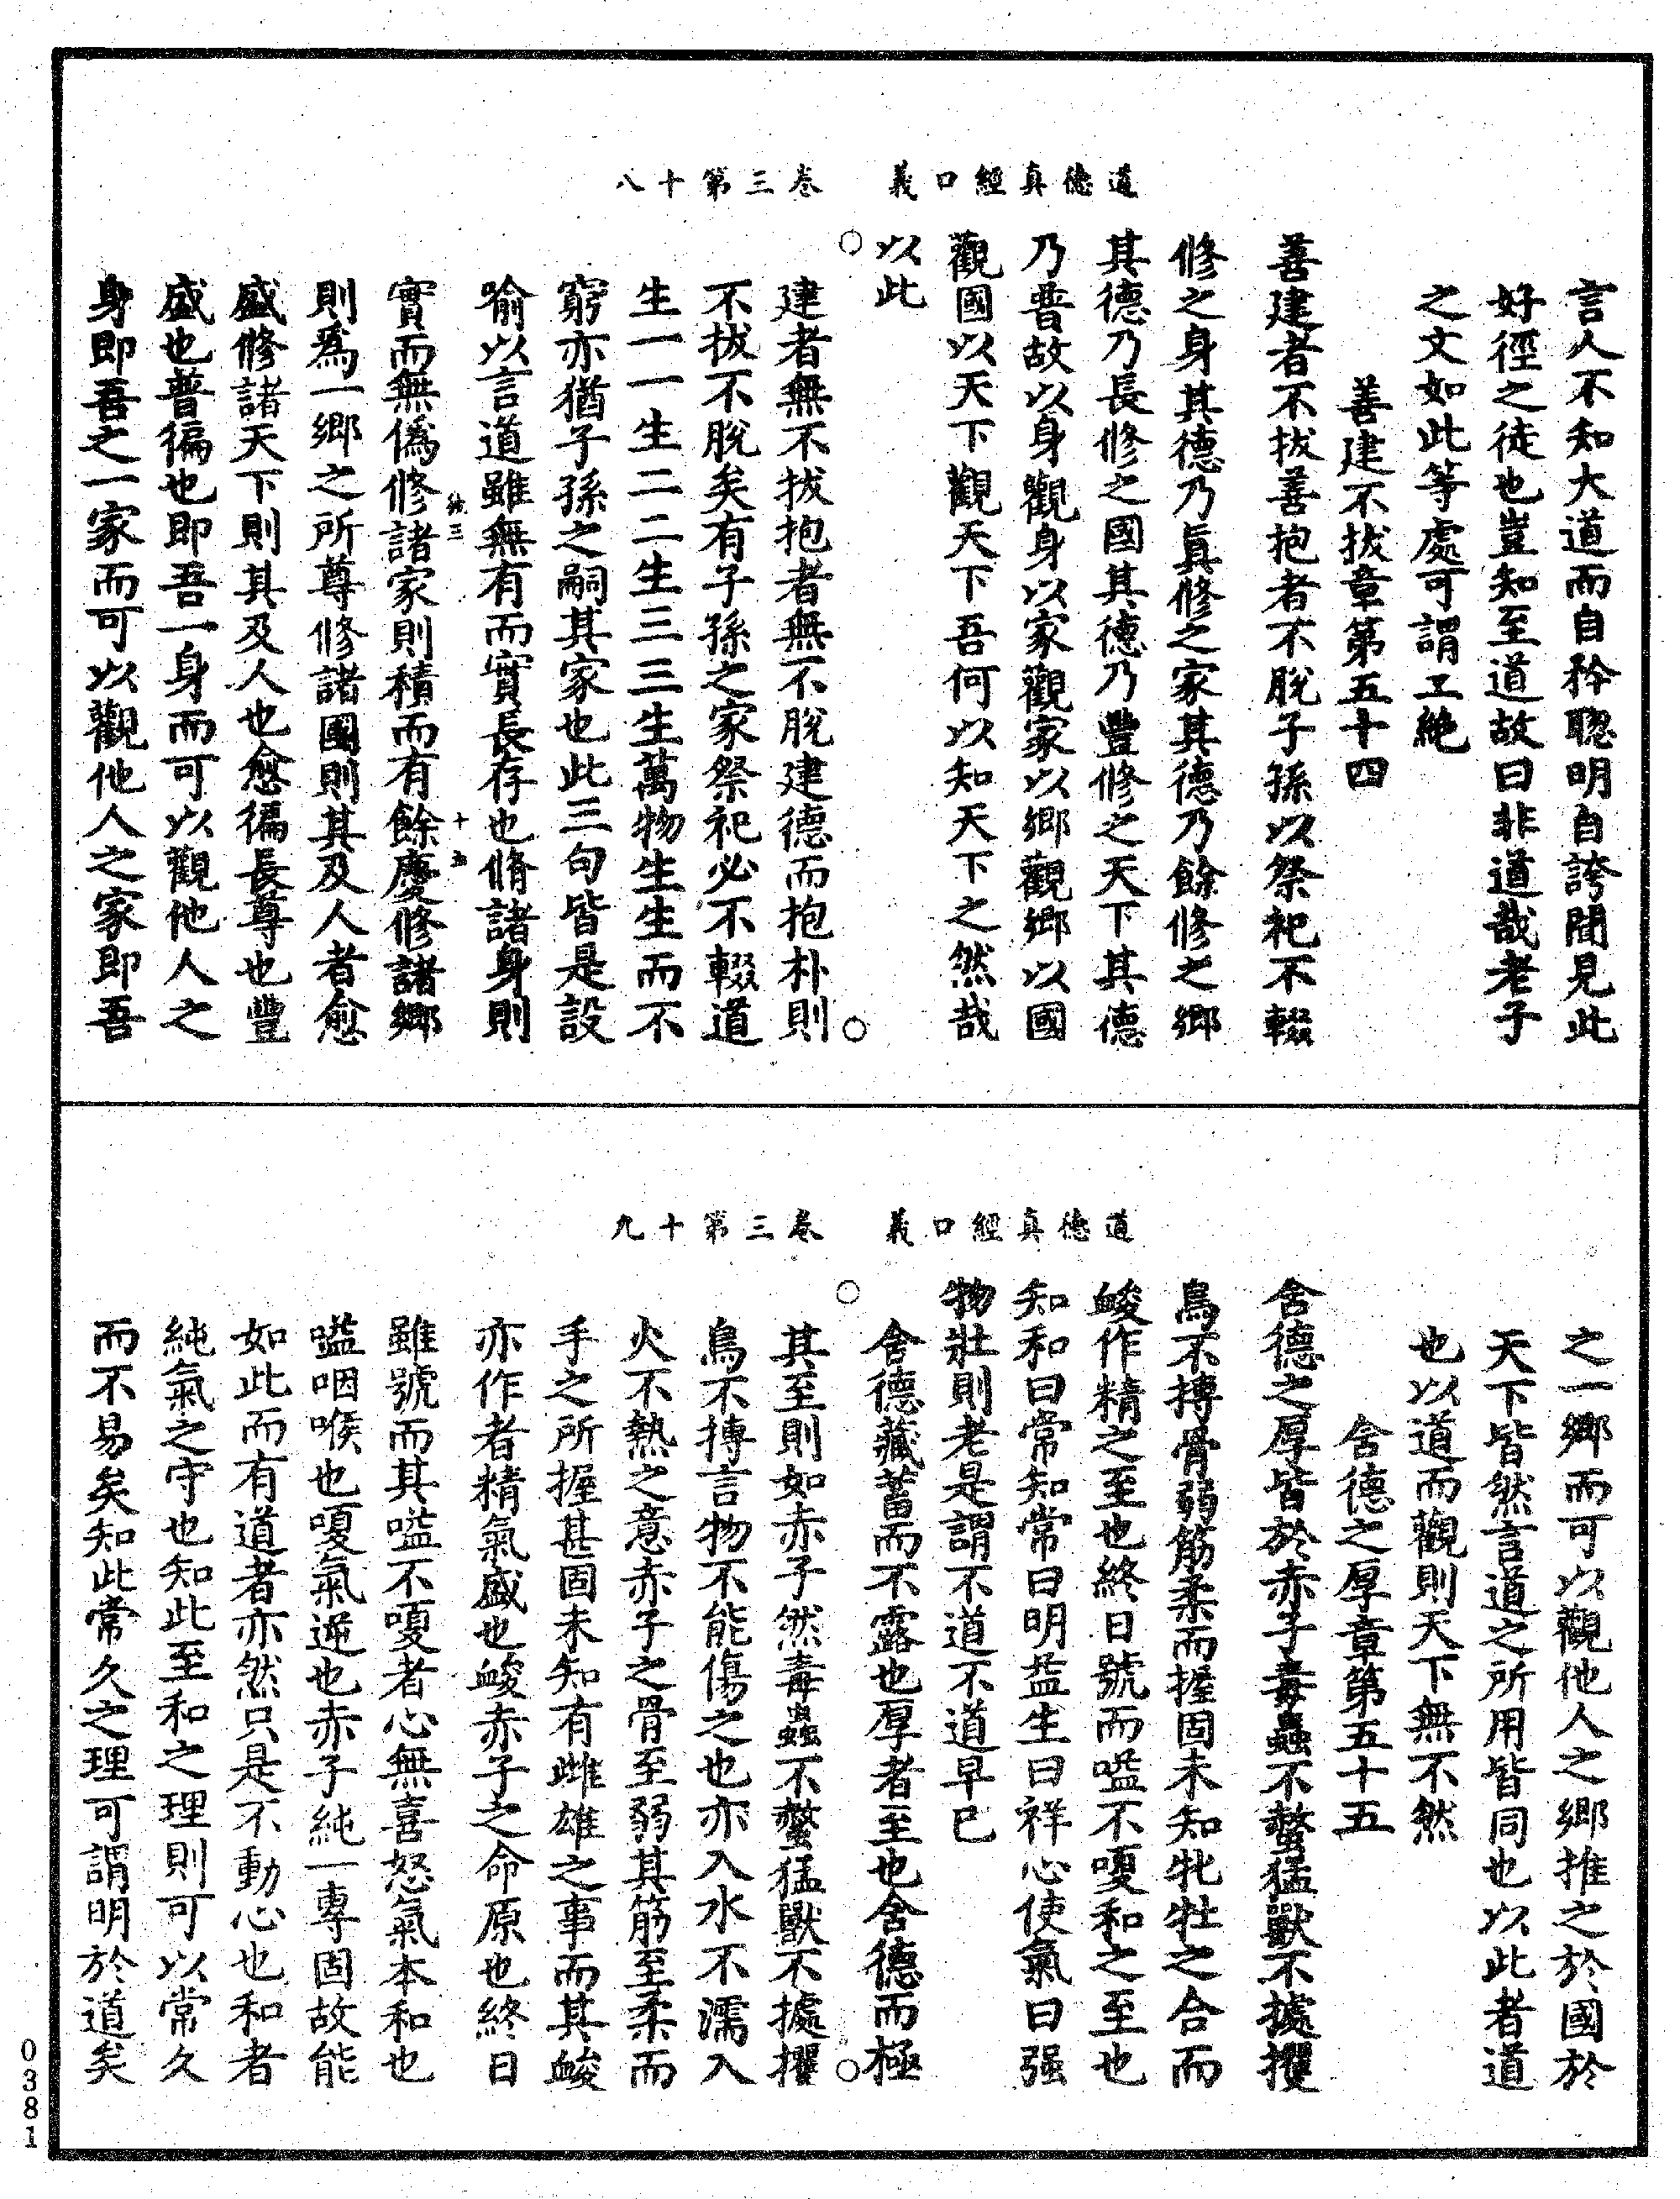 道德真經口義　卷三第十八
言人不知大道而自矜聰明自誇聞見此
好徑之徒也豈知至道故曰非道哉老子
之文如此等處可謂工絶
善建不拔章第五十四
善建者不拔善抱者不脫子孫以祭祀不輟
修之身其德乃眞修之家其德乃餘修之鄉
其德乃長修之國其德乃豐修之天下其德
乃普故以身觀身以家觀家以鄉觀鄉以國
觀國以天下觀天下吾何以知天下之然哉
以此
建者無不拔抱者無不脫建德而抱朴則
不拔不脫矣有子孫之家祭祀必不輟道
生一一生二二生三三生萬物生生而不
窮亦猶子孫之嗣其家也此三句皆是設
喻以言道雖無有而實長存也脩諸身則
實而無僞修諸家則積而有餘慶修諸鄉
則爲一鄉之所尊修諸國則其及人者愈
盛修諸天下則其及人也愈徧長尊也豐
盛也普徧也即吾一身而可以觀他人之
身即吾之一家而可以觀他人之家即吾
道德真經口義　卷三第十九
之一鄉而可以觀他人之鄉推之於國於
天下皆然言道之所用皆同也以此者道
也以道而觀則天下無不然
含德之厚章第五十五
含德之厚皆於赤子毒蟲不螫猛獸不據攫
鳥不搏骨弱筋柔而握固未知牝牡之合而
䘒作精之至也終日號而嗌不嗄和之至也
知和曰常知常曰明益生曰祥心使氣曰强
物壯則老是謂不道不道早已
含德藏蓄而不露也厚者至也含德而極
其至則如赤子然毒蟲不螫猛獸不據攫
鳥不搏言物不能傷之也亦入水不濡入
火不熱之意赤子之骨至弱其筋至柔而
手之所握甚固未知有雌雄之事而其䘒
亦作者精氣盛也䘒赤子之命原也終日
雖號而其嗌不嗄者心無喜怒氣本和也
嗌咽喉也嗄氣逆也赤子純一專固故能
如此而有道者亦然只是不動心也和者
純氣之守也知此至和之理則可以常久
而不易矣知此常久之理可謂明於道矣
0381